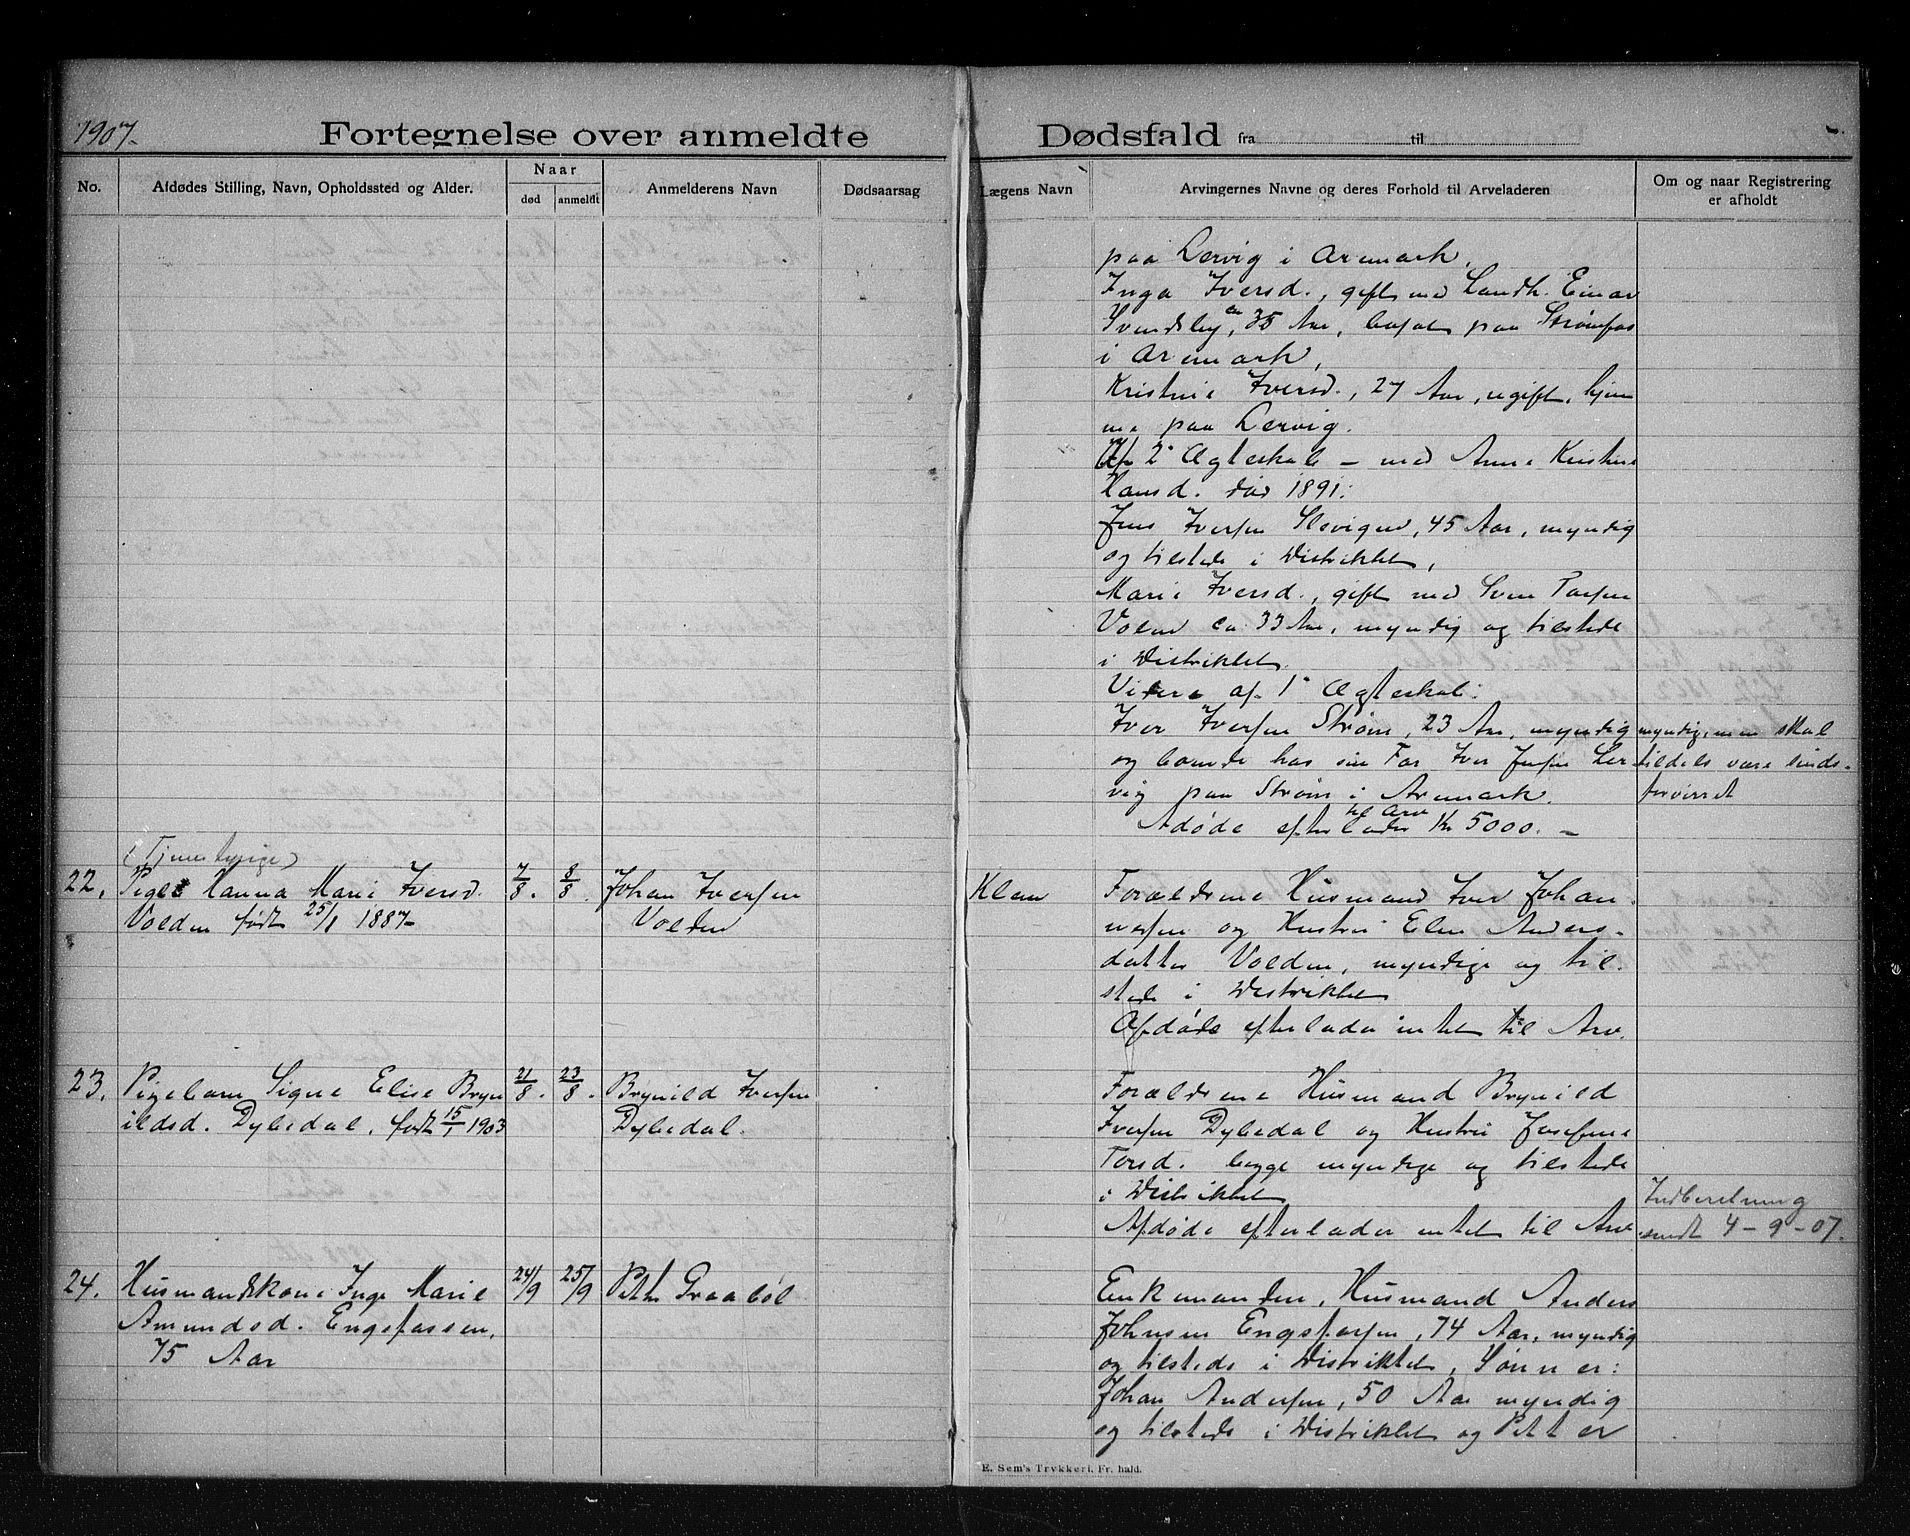 1907.
Fortegnelse over anmeldte Dødsfald fra til
No.
Afdødes Stilling, Navn, Opholdssted og Alder.
Naar
død
anmeldt
Anmelderens Navn
Dødsaarsag
Lægens Navn
Arvingernes Navne og deres Forhold til Arveladeren
Om og naar Registrering
er afholdt
paa Lervig i Aremark,
Inga Iversd., gift med Landh. Einar
Svendsby, ca 35 Aar, bosat paa Strømfos
i Aremark,
Kristine Iversd., 27 Aar, ugift, hjem
me paa Lervig.
Af 2 Ægteskab – med Anne Kristine
Hansd. død 1891:
Jens Iversen Slevigen, 45 Aar, myndig
og tilstede i Distriktet,
Marie Iversd., gift med Sven Torsen
Volen ca 33 Aar, myndig og tilstede
i Distriktet.
Videre af 1 Ægteskab:
Iver Iversen Strøm, 23 Aar, myndig
og boende hos sin Far Iver Jensen Ler-
vig paa Strøm i Aremark.
myndig, men skal
tildels være sinds-
forvirret
Adøde efterlader til Arv Kr 5000. –
(Tjenestepige)
22. Pige Hanna Marie Iversd.
Volden født 25/1 1887
7/8. 8/8.
Johan Iversen
Volden
Klem
Forældrene Husmand Iver Johan
nesen og Hustru Elen Anders-
datter Volden, myndige og til-
stede i Distriktet
Afdøde efterlader intet til Arv.
23. Pigebarn Signe Elise Bryn
ildsd. Dybedal, født 15/1 1903
21/8. 23/8.
Brynild Iversen
Dybedal.
Forældrene Husmand Brynild
Iversen Dybedal og Hustru Josefine
Torsd. begge myndige og tilstede
i Distriktet
Afdøde efterlader intet til Arv
Indberetning
sendt 4-9-07.
24. Husmandskone Inge Marie
Amundsd. Engsfassen,
75 Aar
24/9 25/9
Petter Graabøl
Enkemanden, Husmand Anders
Johnsen Engsfassen, 74 Aar, myndig
og tilstede i Distriktet, Sønner:
Johan Andersen, 50 Aar myndig
og tilstede i Distriktet og Petter
E. Sem's Trykkeri, Fr. hald.